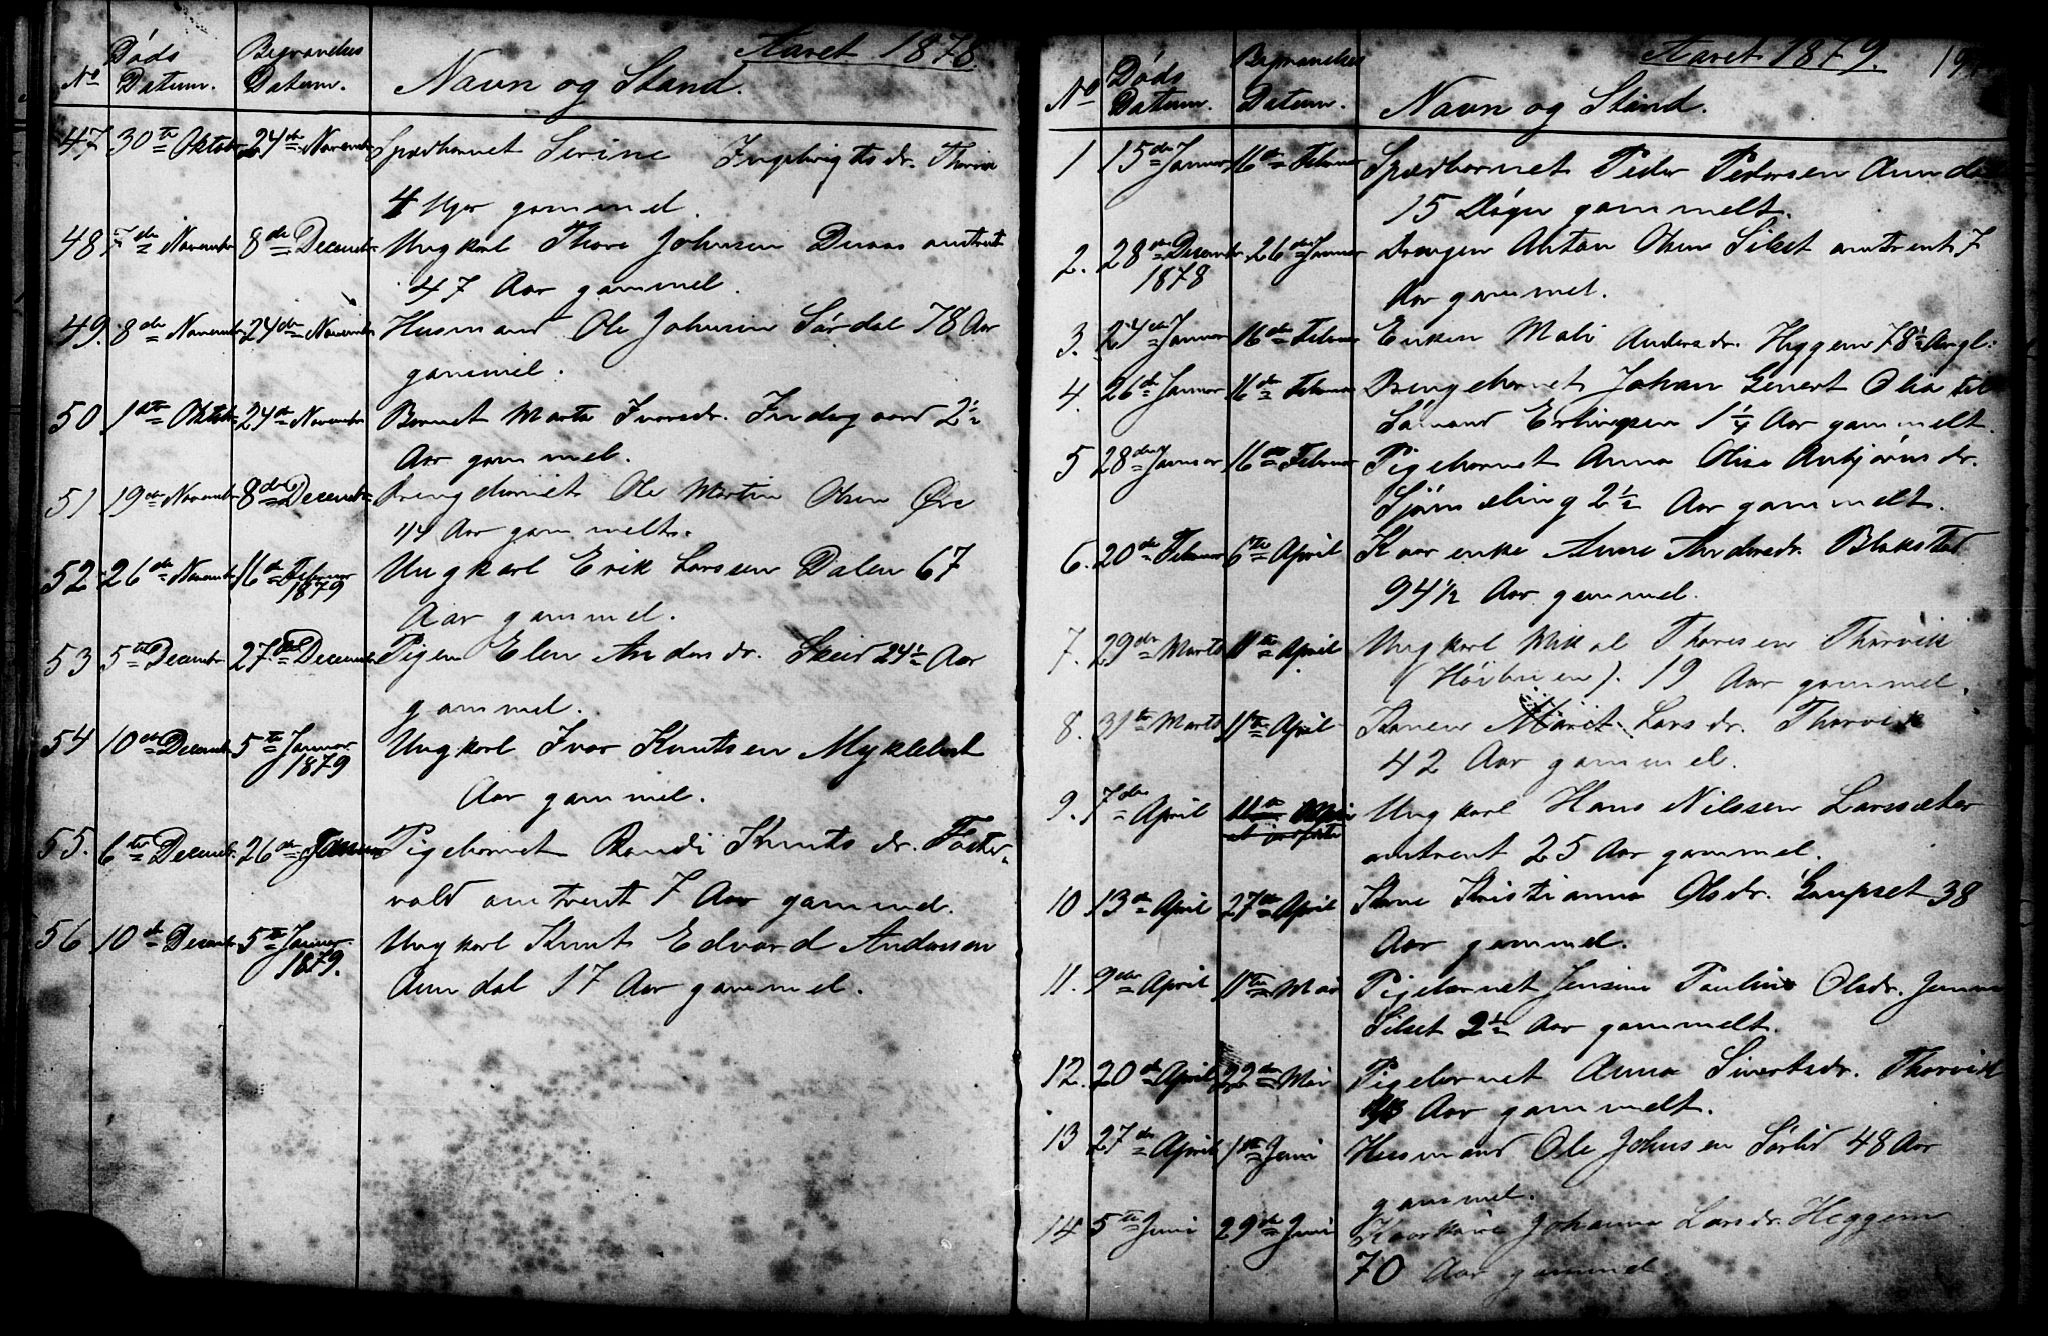 Aaret 1878
No Døds Datum. Begravelses Datum. Navn og Stand.
47 30te Oktobr 24de Novembr Spædbarnet Serine Ingebrigtsdr. Thorvik
4 Uger gammel.
48 7de Novembr 8de Decembr Ungkarl Thore Johnsen omtrent
47 Aar gammel.
49. 8de Novembr 24de Novembr Husmand Ole Johnsen Sørdal 78 Aar
gammel.
50 1ste Oktobr 24de Novembr Barnet Marte Iversdr. Indergaard 2½
Aar gammel.
51 19de Novembr 8de Decembr Drengebarnet Ole Martin Olsen Øre
1/4 Aar gammelt.
52 26de Novembr 16de Februar 1879 Ungkarl Erik Larssen Dalen 67
Aar gammel.
53 5te Decembr 27de Decembr Pigen Elen Andersdr. Skeid 24½ Aar
gammel.
54 10de Decembr 5te Januar 1879 Ungkarl Ivar Knutsen Myklebost
Aar gammel.
55. 6te Decembr. 26de Januar Pigebarnet Randi Knutsdr. Foster-
vold omtrent 7 Aar gammel.
56 10de Decembr 5te Januar 1879. Ungkarl Knut Edvard Anderssen
Aundal 17 Aar gammel.
Aaret 1879.
No Døds Datum. Begravelses Datum. Navn og Stand.
1 15de Januar 16de Februar Spædbarnet Peder Pedersen Aundal
15 Døgn gammelt.
2. 28de Decembr 1878 26de Januar Drengen Anton Olsen Silset omtrent 7
Aar gammel.
3. 24de Januar 16de Februar Enken Mali Andersdr. Heggem 78½ Aar gl.
4. 26de Januar 16de Februar Drengebarnet Johan Gerert Olia til
Sømand Erlingsen 1¼ Aar gammelt.
5 28de Januar 16de Februar Pigebarnet Anna Olise Anbjørnsdr.
2½ Aar gammelt.
6. 20de Februar 6te April Kaarenke Anne Andersdr. Blakstad
94½ Aar gammel.
7. 29de Marts 11te April Ungkarl Mikal Thoresen Thorvik
19 Aar gammel.
8. 31te Marts 11te April Konen Marit Larsdr. Thorvik
42 Aar gammel.
9. 7de April 11te April Ungkarl Hans Nilssen Larssæter
omtrent 25 Aar gammel.
10 13de April 27de April Kone Kristianna Olsdr. Gaupset 38
Aar gammel.
11. 9de April 11te Mai Pigebarnet Jensine Pauline Olsdr.
Silset 2½ Aar gammelt.
12. 20de April 22de Mai Pigebarnet Anna Sivertsdr. Thorvik
Aar gammelt.
13 27de April 1ste Juni Husmand Ole Johnsen Sørlid 48 Aar
gammel.
14 5te Juni 29de Juni Kaarkone Johanna Larsdr. Heggem
70 Aar gammel.